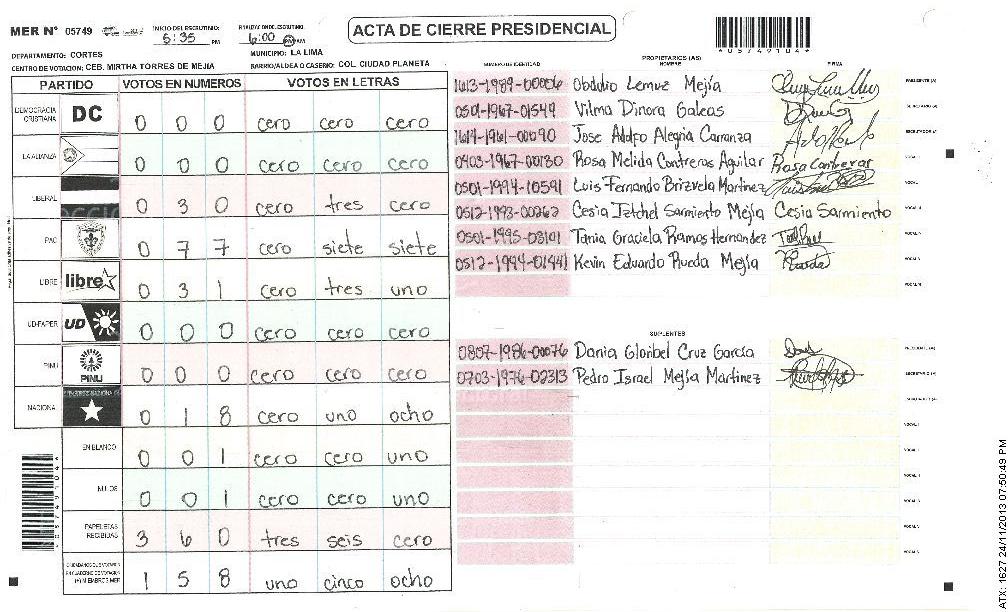 MER Nº 05749
INICIO DEL ESCRUTINIO:
5:35 PM
FINALIZACION DE ESCRUTINIO
6:00 PM AM
ACTA DE CIERRE PRESIDENCIAL
DEPARTAMENTO: CORTES
MUNICIPIO: LA LIMA
CENTRO DE VOTACION: CEB. MIRTHA TORRES DE MEJIA
BARRIO/ALDEA O CASERIO: COL. CIUDAD PLANETA
PARTIDO VOTOS EN NUMEROS VOTOS EN LETRAS
DEMOCRACIA CRISTIANA DC 0 0 0 cero cero cero
LA ALIANZA 0 0 0 cero cero cero
LIBERAL 0 3 0 cero tres cero
PAC 0 7 7 cero siete siete
LIBRE libre 0 3 1 cero tres uno
UD-FAPER UD 0 0 0 cero cero cero
PINU PINU 0 0 0 cero cero cero
NACIONAL 0 1 8 cero uno ocho
EN BLANCO 0 0 1 cero cero uno
NULOS 0 0 1 cero cero uno
PAPELETAS RECIBIDAS 3 6 0 tres seis cero
1 5 8 uno cinco ocho
PROPIETARIOS (AS)
NUMERO DE IDENTIDAD NOMBRE FIRMA
1613-1989-00006 Obdulio Lemuz Mejía PRESIDENTE (A)
0501-1967-01549 Vilma Dinora Galeas SECRETARIO (A)
1614-1961-00090 Jose Adolfo Alegria Carranza ESCRUTADOR (A)
0403-1967-00130 Rosa Melida Contreras Aguilar Rosa Contreras
0501-1994-10591 Luis Fernando Brizuela Martinez
0512-1993-00262 Cesia Itzchel Sarmiento Mejía Cesia Sarmiento
0501-1995-03101 Tania Graciela Ramos Hernandez
0512-1994-01441 Kevin Eduardo Rueda Mejía
SUPLENTES
0807-1986-00076 Dania Gloribel Cruz García PRESIDENTE (A)
0703-1976-02313 Pedro Israel Mejía Martinez SECRETARIO (A)
ATX: 1627 24/11/2013 07:50:49 PM